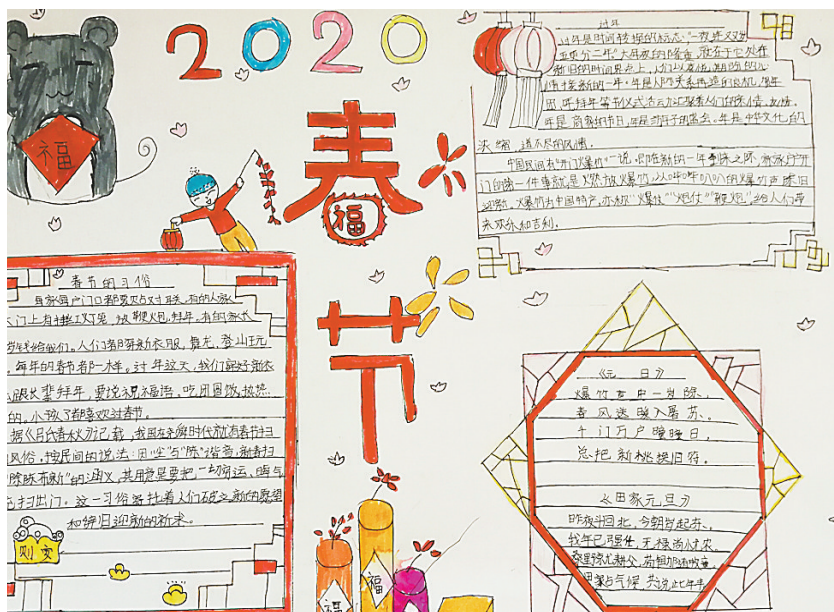 2020
春
福
节
福
过年
过年是时间转换的标志，"一夜连双岁
五更分二年"
迎接新的一年。年是人际关系再造的良机，
中国民间有"开门爆竹"一说。即在新的一年到来之际，家家户户开
门的第一件事就是燃放爆竹，以哔哔叭叭的爆竹声除旧
迎新。爆竹为中国特产，亦称"爆仗""炮仗""鞭炮"。给人们带
来欢乐和吉利。
春节的习俗
每家每户门口都要贴对联，有的人家
门上有挂红灯笼，放鞭炮，拜年。有的家长
岁钱给我们。人们都穿新衣服，舞龙，登山玩
每年的春节都一样。过年这天，我们穿好新衣
跟长辈拜年，要说祝福语。吃团圆饭，
的。小孩子都喜欢过春节。
据《吕氏春秋》记载，我国在尧舜时代就有春节扫
风俗，按民间的说法：因"尘"与"陈"谐音，新春扫
除陈布新"的涵义，其用意是要把一切穷运，晦气
扫出门。这一习俗寄托着人们破旧立新的愿望
和辞旧迎新的祈求。
《元 日》
爆竹声中一岁除，
春风送暖入屠苏。
千门万户曈曈日，
总把新桃换旧符。
《田家元旦》
昨夜斗回北，今朝岁起东。
我年已强仕，无禄尚忧农。
桑野就耕父，荷锄随牧童。
田家占气候，共说此年丰。
福
福